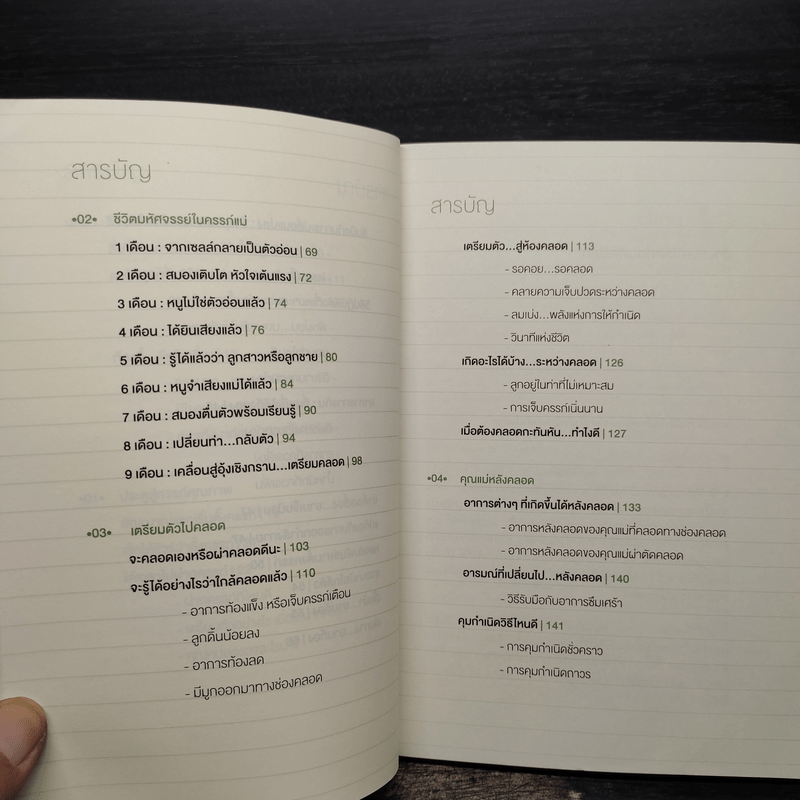 สารบัญ
•02• ชีวิตมหัศจรรย์ในครรภ์แม่
1 เดือน : จากเซลล์กลายเป็นตัวอ่อน | 69
2 เดือน : สมองเติบโต หัวใจเต้นแรง | 72
3 เดือน : หนูไม่ใช่ตัวอ่อนแล้ว | 74
4 เดือน : ได้ยินเสียงแล้ว | 76
5 เดือน : รู้ได้แล้วว่า ลูกสาวหรือลูกชาย | 80
6 เดือน : หนูจำเสียงแม่ได้แล้ว | 84
7 เดือน : สมองตื่นตัวพร้อมเรียนรู้ | 90
8 เดือน : เปลี่ยนท่า...กลับตัว | 94
9 เดือน : เคลื่อนสู่อุ้งเชิงกราน...เตรียมคลอด | 98
•03• เตรียมตัวไปคลอด
จะคลอดเองหรือผ่าคลอดดีนะ | 103
จะรู้ได้อย่างไรว่าใกล้คลอดแล้ว | 110
- อาการท้องแข็ง หรือเจ็บครรภ์เตือน
- ลูกดิ้นน้อยลง
- อาการท้องลด
- มีมูกออกมาทางช่องคลอด
สารบัญ
เตรียมตัว...สู่ห้องคลอด | 113
- รอคอย...รอคลอด
- คลายความเจ็บปวดระหว่างคลอด
- ลมเบ่ง...พลังแห่งการให้กำเนิด
- วินาทีแห่งชีวิต
เกิดอะไรได้บ้าง...ระหว่างคลอด | 126
- ลูกอยู่ในท่าที่ไม่เหมาะสม
- การเจ็บครรภ์เนิ่นนาน
เมื่อต้องคลอดกะทันหัน...ทำไงดี | 127
•04• คุณแม่หลังคลอด
อาการต่างๆ ที่เกิดขึ้นได้หลังคลอด | 133
- อาการหลังคลอดของคุณแม่ที่คลอดทางช่องคลอด
- อาการหลังคลอดของคุณแม่ผ่าตัดคลอด
อารมณ์ที่เปลี่ยนไป...หลังคลอด | 140
- วิธีรับมือกับอาการซึมเศร้า
คุมกำเนิดวิธีไหนดี | 141
- การคุมกำเนิดชั่วคราว
- การคุมกำเนิดถาวร